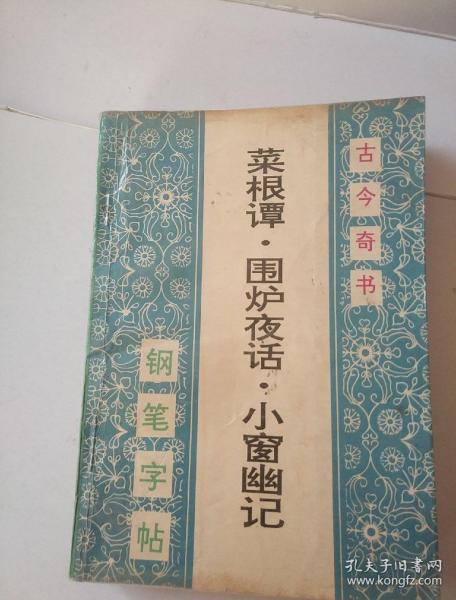 古今奇书
菜根谭·围炉夜话·小窗幽记
钢笔字帖
孔夫子旧书网
www.kongfz.com